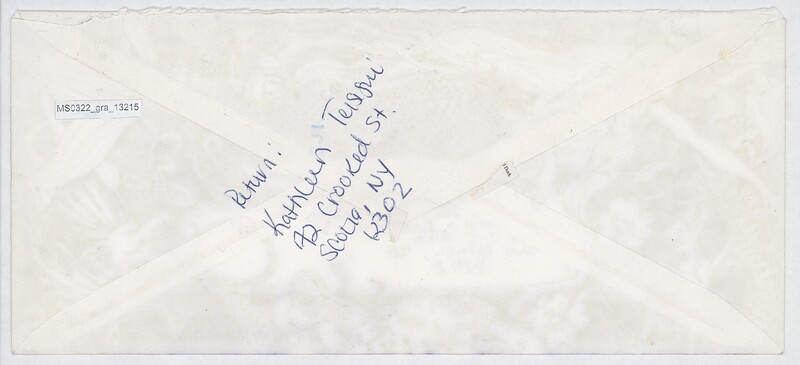 MS0322_gra_13215
Return:
Kathleen
72 Crooked St.
Scotia, NY
12302